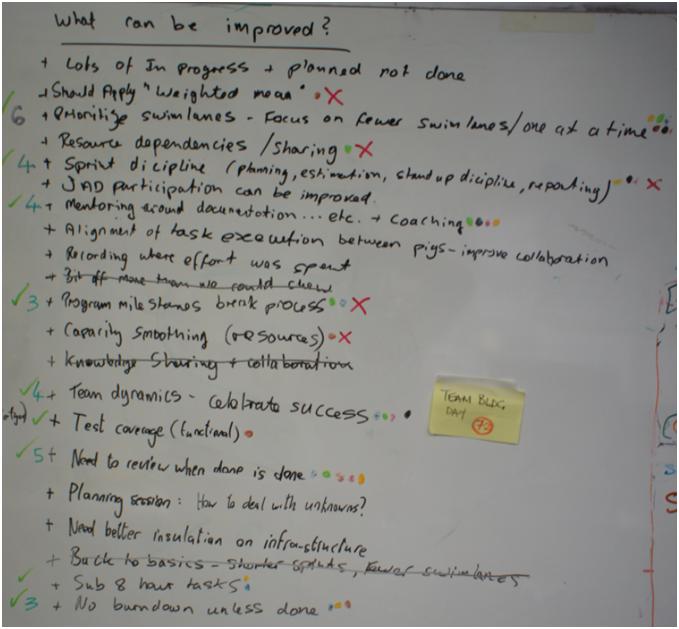 What can be improved?
+ Lots of In progress + planned not done
+ Should Apply "Weighted mean" X
✓ 6 + Prioritize swimlanes - Focus on fewer swimlanes/one at a time
+ Resource dependencies / sharing X
✓ 4 + Sprint dicipline (planning, estimation, stand up dicipline, reporting) X
+ JAD participation can be improved.
✓ 4 + Mentoring around documentation ... etc. + Coaching
+ Alignment of task execution between pigs - improve collaboration
+ Recording where effort was spent
+ Bit off more than we could chew
✓ 3 + Program milestones break process X
+ Capacity smoothing (resources) X
+ Knowledge Sharing + collaboration
✓ 4 + Team dynamics - celebrate success
TEAM BLDG
DAY
✓ + Test coverage (functional)
✓ 5 + Need to review when done is done
+ Planning session: How to deal with unknowns?
+ Need better insulation on infra-structure
+ Back to basics - shorter sprints, fewer swimlanes
✓ + Sub 8 hour tasks
✓ 3 + No burndown unless done